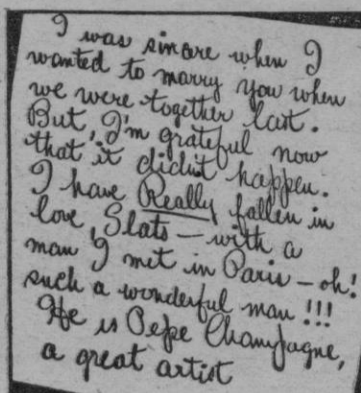 I was sincere when I
wanted to marry you when
we were together last.
But, I'm grateful now
that it didn't happen.
I have Really fallen in
love, Slats — with a
man I met in Paris — oh!
such a wonderful man !!!
He is Pepe Champagne,
a great artist